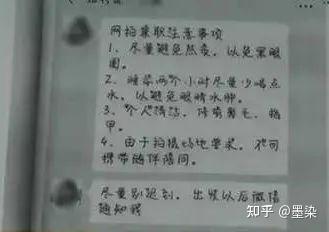 网拍兼职注意事项
1、尽量避免熬夜，以免黑眼
圈。
2、睡前两个小时尽量少喝点
水，以避免眼睛水肿。
3、个人清洁，修剪鼻毛，指
甲。
4、由于拍摄场地要求，不可
携带随伴陪同。
尽量别迟到，出发以后微信
通知我
知乎 @墨染